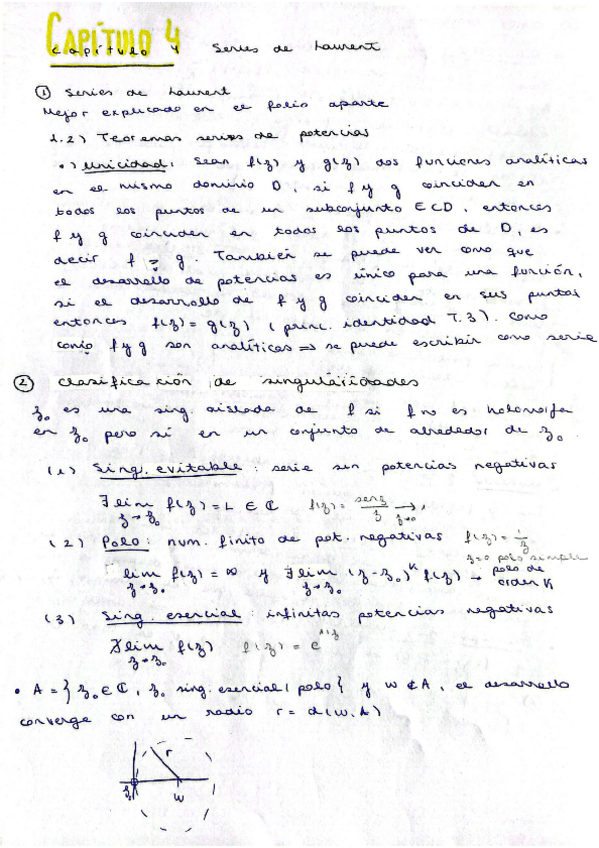 CAPÍTULO 4
Capítulo 4 Series de Laurent
① Series de Laurent
Mejor explicado en el folio aparte
1.2) Teoremas series de potencias
•) Unicidad: Sean f(z) y g(z) dos funciones analíticas
en el mismo dominio D, si f y g coinciden en
todos los puntos de un subconjunto E⊂D, entonces
f y g coinciden en todos los puntos de D, es
decir f = g. También se puede ver como que
el desarrollo de potencias es único para una función,
si el desarrollo de f y g coinciden en sus puntos
entonces f(z) = g(z) (princ. identidad T.3). Como
como f y g son analíticas ⇒ se puede escribir como serie
② Clasificación de singularidades
z₀ es una sing. aislada de f si f no es holomorfa
en z₀ pero sí en un conjunto de alrededor de z₀
(1) Sing. evitable: serie sin potencias negativas
∃ lim f(z) = L ∈ ℂ f(z) = sen z / z →
z→z₀ z→0
(2) Polo: num. finito de pot. negativas f(z) = 1/z
z=0 polo simple
lim f(z) = ∞ y ∃ lim (z-z₀)ᴷ f(z) → polo de
z→z₀ z→z₀ orden K
(3) Sing. esencial: infinitas potencias negativas
∄ lim f(z) f(z) = e^1/z
z→z₀
• A = { z₀ ∈ ℂ, z₀ sing. esencial / polo } y w ∉ A, el desarrollo
converge con un radio r = d(w, A)
r
z₀ w